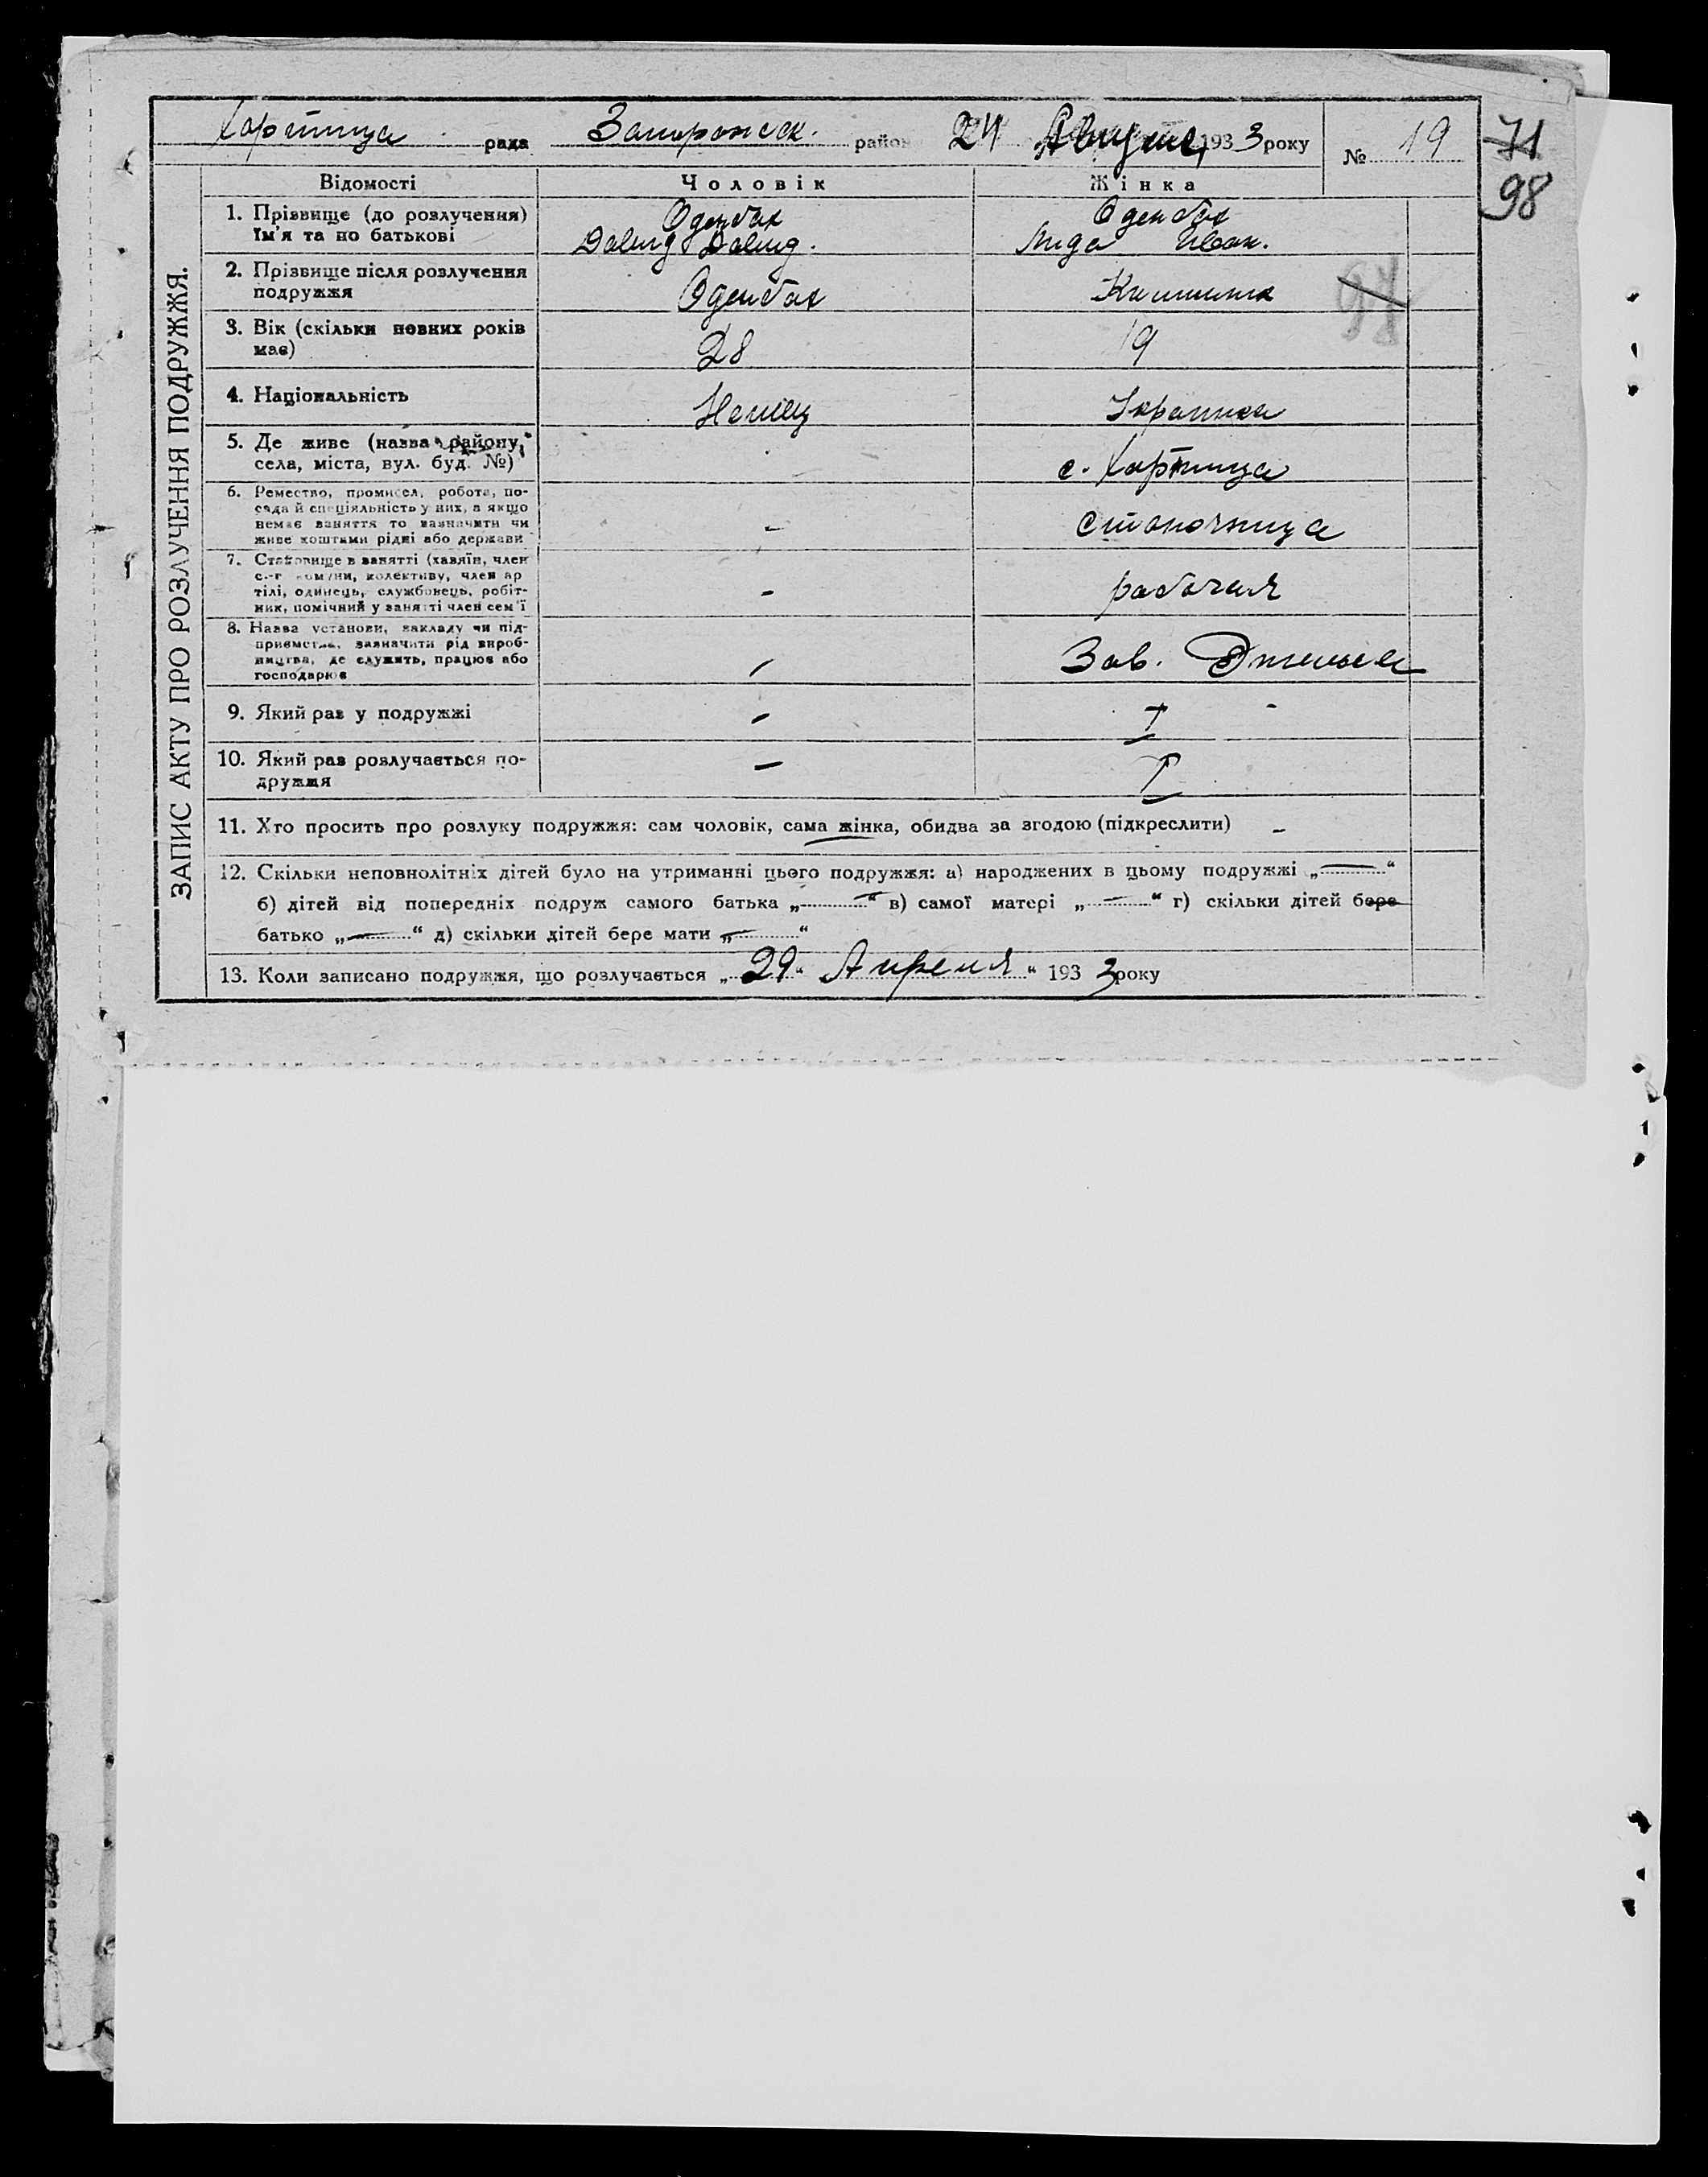 Хортица рада Запорожск. район 24 Августа 1933 року № 19
71
98
ЗАПИС АКТУ ПРО РОЗЛУЧЕННЯ ПОДРУЖЖЯ.
Відомості Чоловік Жінка
1. Прізвище (до розлучення) Оденбах Оденбах
Ім'я та по батькові Давид Давид. Лида Иван.
2. Прізвище після розлучення
подружжя Оденбах
3. Вік (скільки повних років
має) 28 19
4. Національність Немец Украинка
5. Де живе (назва району,
села, міста, вул. буд. №) с. Хортица
6. Ремество, промисел, робота, по-
сада й спеціяльність у них, а якщо
немає заняття то зазначити чи
живе коштами рідні або держави - станочница
7. Становище в занятті (хазяїн, член
с.-г комуни, колективу, член ар
тілі, одинець, службовець, робіт-
ник, помічний у занятті член сем'ї - рабочая
8. Назва установи, закладу чи під-
приємства, зазначити рід вироб-
ництва, де служить, працює або
господарює - Зав. Энгельса
9. Який раз у подружжі - I -
10. Який раз розлучається по-
дружжя - I
11. Хто просить про розлуку подружжя: сам чоловік, сама жінка, обидва за згодою (підкреслити) -
12. Скільки неповнолітніх дітей було на утриманні цього подружжя: а) народжених в цьому подружжі „—“
б) дітей від попередніх подруж самого батька „—“ в) самої матері „—“ г) скільки дітей бере
батько „—“ д) скільки дітей бере мати „—“
13. Коли записано подружжя, що розлучається „29“ Апреля “ 1933 року